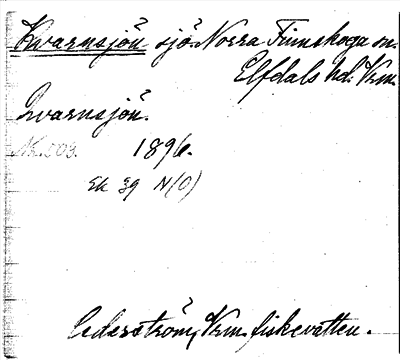 Kvarnsjön sjö. Norra Finnskoga sn.
Elfdals hd. Vrm.
Qvarnsjön.
NK. 503. 1896.
Ek 39 N(O)
Cederström, Vrm. fiskevatten.